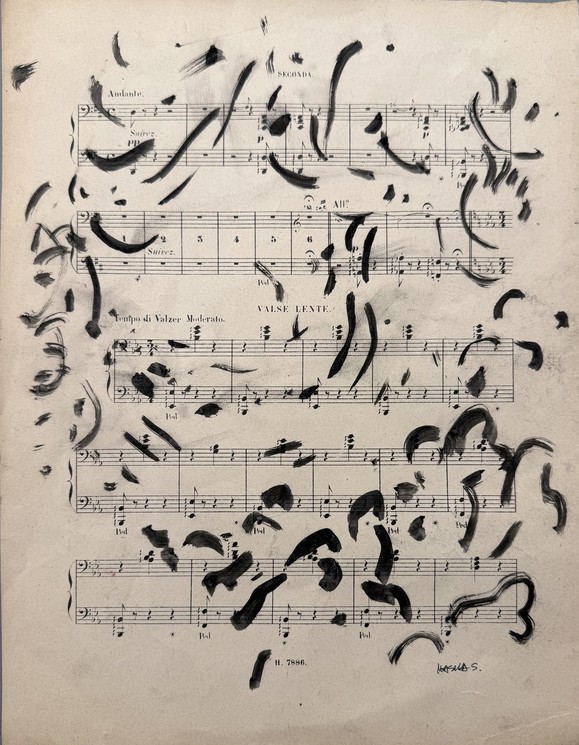 SECONDA.
Andante.
Suivez.
PP
P
All°
1 2 3 4 5 6
Suivez.
P
Ped
VALSE LENTE.
Tempo di Valzer Moderato.
Ped
Ped * Ped * Ped
* Ped * Ped
H. 7886.